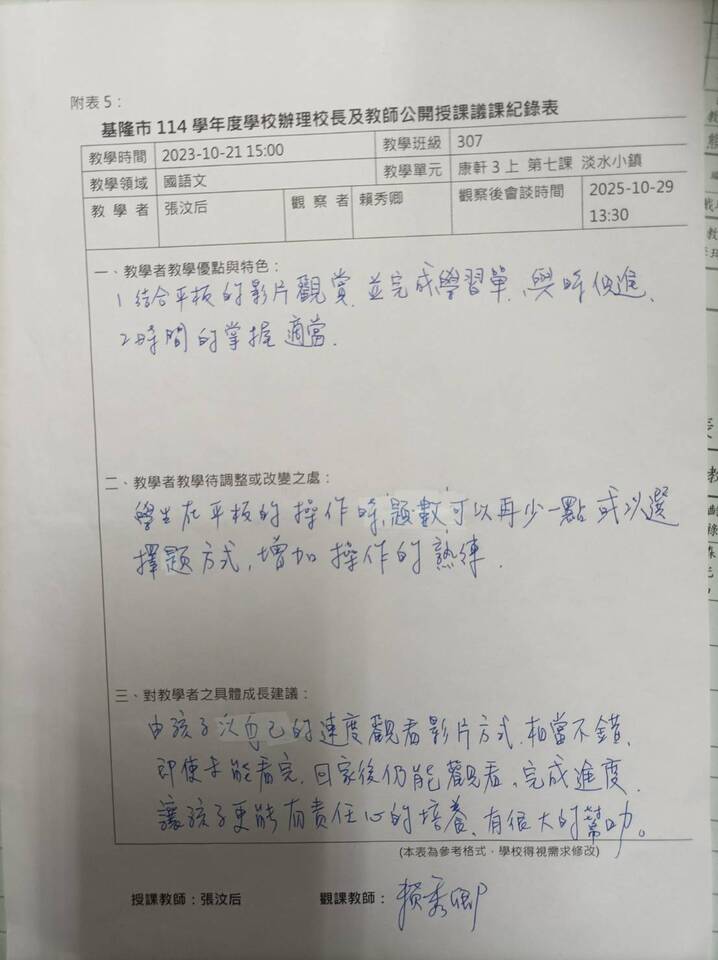 附表 5：
基隆市 114 學年度學校辦理校長及教師公開授課議課紀錄表
教學時間 2023-10-21 15:00 教學班級 307
教學領域 國語文 教學單元 康軒 3 上 第七課 淡水小鎮
教學者 張汶后 觀察者 賴秀卿 觀察後會談時間 2025-10-29 13:30
一、教學者教學優點與特色：
1 結合平板的影片觀賞、並完成學習單、與時俱進、
2 時間的掌握適當.
二、教學者教學待調整或改變之處：
學生在平板的操作時，題數可以再少一點或以選
擇題方式，增加操作的熟練.
三、對教學者之具體成長建議：
由孩子以自己的速度觀看影片方式、相當不錯、
即使未能看完、回家後仍能觀看、完成進度、
讓孩子更能有責任心的培養、有很大的幫助。
(本表為參考格式，學校得視需求修改)
授課教師：張汶后 觀課教師：賴秀卿